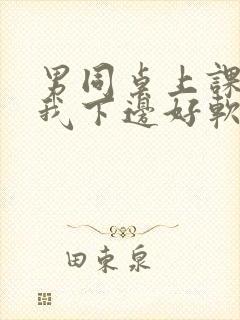 男同桌上課
我下邊好軟
田束泉